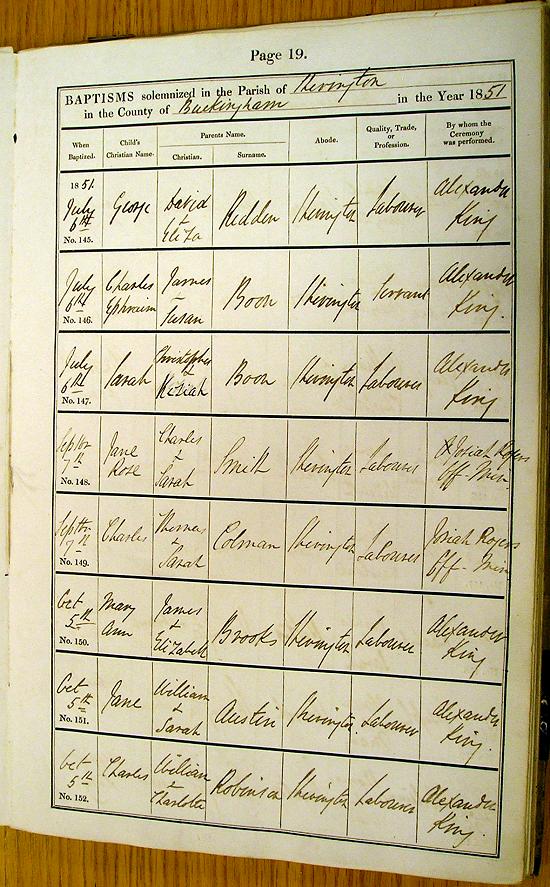 Page 19.
BAPTISMS solemnized in the Parish of Shevington
in the County of Buckingham in the Year 1851
When Baptized. Child's Christian Name. Parents Name. Christian. Surname. Abode. Quality, Trade, or Profession. By whom the Ceremony was performed.
1851. July 6th No. 145. George David & Eliza Redden Labourer Alexander King
July 6th No. 146. Charles Ephraim James Susan Boon Servant Alexander King.
July 6th No. 147. Sarah Christopher & Keziah Boon Labourer Alexander King
Septbr 7th No. 148. Jane Rose Charles & Sarah Smith Labourer Josiah Rogers Off- Min.
Septbr 7th No. 149. Charles Thomas & Sarah Colman Labourer Josiah Rogers Off- Min
Oct 5th No. 150. Mary Ann James & Elizabeth Brooks Labourer Alexander King
Oct 5th No. 151. Jane William & Sarah Austin Labourer Alexander King.
Oct 5th No. 152. Charles William & Charlotte Robinson Labourer Alexander King.